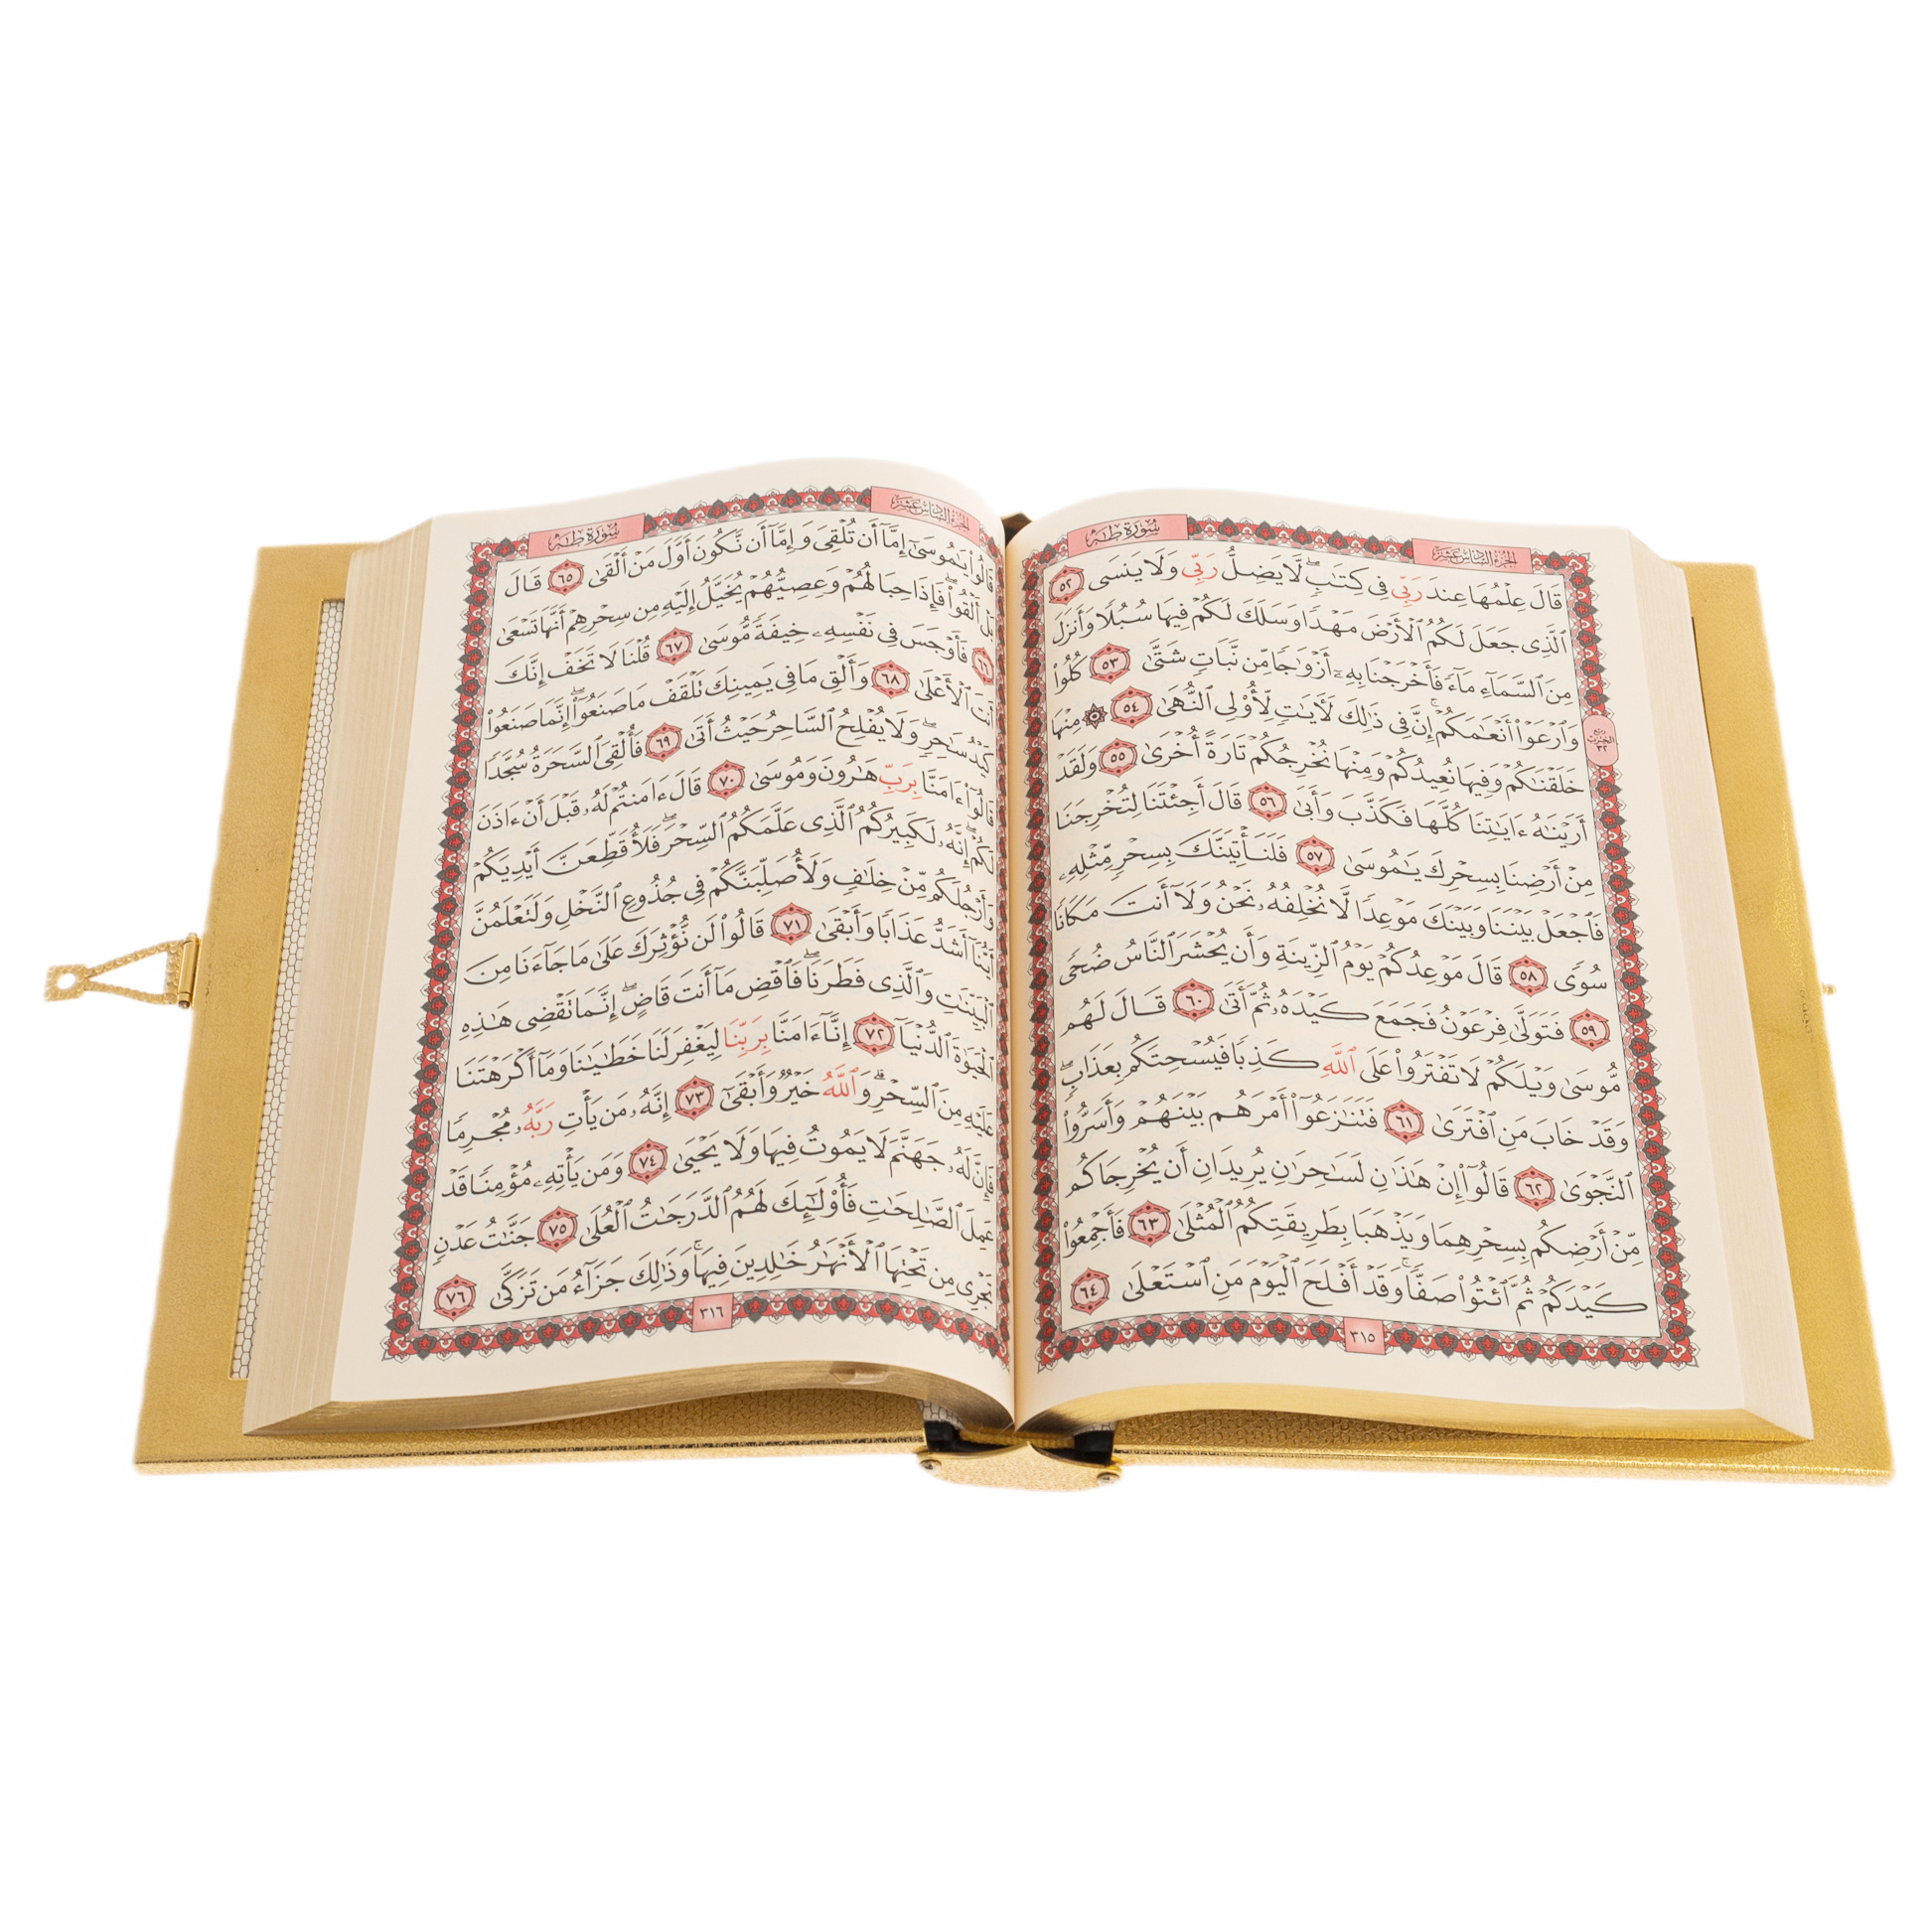 سُورَةُ طٰهٰ
الجُزءُ السَّادِسَ عَشَرَ
قَالَ عِلْمُهَا عِندَ رَبِّى فِى كِتَٰبٍۖ لَّا يَضِلُّ رَبِّى وَلَا يَنسَى ٥٢
ٱلَّذِى جَعَلَ لَكُمُ ٱلْأَرْضَ مَهْدًا وَسَلَكَ لَكُمْ فِيهَا سُبُلًا وَأَنزَلَ
مِنَ ٱلسَّمَآءِ مَآءً فَأَخْرَجْنَا بِهِۦٓ أَزْوَٰجًا مِّن نَّبَاتٍ شَتَّىٰ ٥٣ كُلُوا۟
وَٱرْعَوْا۟ أَنْعَٰمَكُمْۗ إِنَّ فِى ذَٰلِكَ لَءَايَٰتٍ لِّأُو۟لِى ٱلنُّهَىٰ ٥٤ ۞ مِنْهَا
خَلَقْنَٰكُمْ وَفِيهَا نُعِيدُكُمْ وَمِنْهَا نُخْرِجُكُمْ تَارَةً أُخْرَىٰ ٥٥ وَلَقَدْ
أَرَيْنَٰهُ ءَايَٰتِنَا كُلَّهَا فَكَذَّبَ وَأَبَىٰ ٥٦ قَالَ أَجِئْتَنَا لِتُخْرِجَنَا
مِنْ أَرْضِنَا بِسِحْرِكَ يَٰمُوسَىٰ ٥٧ فَلَنَأْتِيَنَّكَ بِسِحْرٍ مِّثْلِهِۦ
فَٱجْعَلْ بَيْنَنَا وَبَيْنَكَ مَوْعِدًا لَّا نُخْلِفُهُۥ نَحْنُ وَلَآ أَنتَ مَكَانًا
سُوًى ٥٨ قَالَ مَوْعِدُكُمْ يَوْمُ ٱلزِّينَةِ وَأَن يُحْشَرَ ٱلنَّاسُ ضُحًى
٥٩ فَتَوَلَّىٰ فِرْعَوْنُ فَجَمَعَ كَيْدَهُۥ ثُمَّ أَتَىٰ ٦٠ قَالَ لَهُم
مُّوسَىٰ وَيْلَكُمْ لَا تَفْتَرُوا۟ عَلَى ٱللَّهِ كَذِبًا فَيُسْحِتَكُم بِعَذَابٍۖ
وَقَدْ خَابَ مَنِ ٱفْتَرَىٰ ٦١ فَتَنَٰزَعُوٓا۟ أَمْرَهُم بَيْنَهُمْ وَأَسَرُّوا۟
ٱلنَّجْوَىٰ ٦٢ قَالُوٓا۟ إِنْ هَٰذَٰنِ لَسَٰحِرَٰنِ يُرِيدَانِ أَن يُخْرِجَاكُم
مِّنْ أَرْضِكُم بِسِحْرِهِمَا وَيَذْهَبَا بِطَرِيقَتِكُمُ ٱلْمُثْلَىٰ ٦٣ فَأَجْمِعُوا۟
كَيْدَكُمْ ثُمَّ ٱئْتُوا۟ صَفًّاۚ وَقَدْ أَفْلَحَ ٱلْيَوْمَ مَنِ ٱسْتَعْلَىٰ ٦٤
٣١٥
سُورَةُ طٰهٰ
الجُزءُ السَّادِسَ عَشَرَ
قَالُوا۟ يَٰمُوسَىٰٓ إِمَّآ أَن تُلْقِىَ وَإِمَّآ أَن نَّكُونَ أَوَّلَ مَنْ أَلْقَىٰ ٦٥ قَالَ
بَلْ أَلْقُوا۟ۖ فَإِذَا حِبَالُهُمْ وَعِصِيُّهُمْ يُخَيَّلُ إِلَيْهِ مِن سِحْرِهِمْ أَنَّهَا تَسْعَىٰ
٦٦ فَأَوْجَسَ فِى نَفْسِهِۦ خِيفَةً مُّوسَىٰ ٦٧ قُلْنَا لَا تَخَفْ إِنَّكَ
أَنتَ ٱلْأَعْلَىٰ ٦٨ وَأَلْقِ مَا فِى يَمِينِكَ تَلْقَفْ مَا صَنَعُوٓا۟ۖ إِنَّمَا صَنَعُوا۟
كَيْدُ سَٰحِرٍۖ وَلَا يُفْلِحُ ٱلسَّاحِرُ حَيْثُ أَتَىٰ ٦٩ فَأُلْقِىَ ٱلسَّحَرَةُ سُجَّدًا
قَالُوٓا۟ ءَامَنَّا بِرَبِّ هَٰرُونَ وَمُوسَىٰ ٧٠ قَالَ ءَامَنتُمْ لَهُۥ قَبْلَ أَنْ ءَاذَنَ
لَكُمْۖ إِنَّهُۥ لَكَبِيرُكُمُ ٱلَّذِى عَلَّمَكُمُ ٱلسِّحْرَۖ فَلَأُقَطِّعَنَّ أَيْدِيَكُمْ
وَأَرْجُلَكُم مِّنْ خِلَٰفٍ وَلَأُصَلِّبَنَّكُمْ فِى جُذُوعِ ٱلنَّخْلِ وَلَتَعْلَمُنَّ
أَيُّنَآ أَشَدُّ عَذَابًا وَأَبْقَىٰ ٧١ قَالُوا۟ لَن نُّؤْثِرَكَ عَلَىٰ مَا جَآءَنَا مِنَ
ٱلْبَيِّنَٰتِ وَٱلَّذِى فَطَرَنَاۖ فَٱقْضِ مَآ أَنتَ قَاضٍۖ إِنَّمَا تَقْضِى هَٰذِهِ
ٱلْحَيَوٰةَ ٱلدُّنْيَآ ٧٢ إِنَّآ ءَامَنَّا بِرَبِّنَا لِيَغْفِرَ لَنَا خَطَٰيَٰنَا وَمَآ أَكْرَهْتَنَا
عَلَيْهِ مِنَ ٱلسِّحْرِۗ وَٱللَّهُ خَيْرٌ وَأَبْقَىٰٓ ٧٣ إِنَّهُۥ مَن يَأْتِ رَبَّهُۥ مُجْرِمًا
فَإِنَّ لَهُۥ جَهَنَّمَ لَا يَمُوتُ فِيهَا وَلَا يَحْيَىٰ ٧٤ وَمَن يَأْتِهِۦ مُؤْمِنًا قَدْ
عَمِلَ ٱلصَّٰلِحَٰتِ فَأُو۟لَٰٓئِكَ لَهُمُ ٱلدَّرَجَٰتُ ٱلْعُلَىٰ ٧٥ جَنَّٰتُ عَدْنٍ
تَجْرِى مِن تَحْتِهَا ٱلْأَنْهَٰرُ خَٰلِدِينَ فِيهَاۚ وَذَٰلِكَ جَزَآءُ مَن تَزَكَّىٰ ٧٦
٣١٦